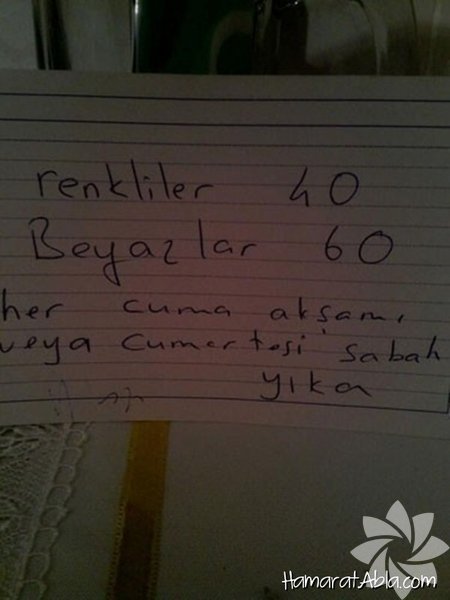 renkliler 40
Beyazlar 60
her cuma akşamı
veya cumartesi sabah
yıka
HamaratAbla.com